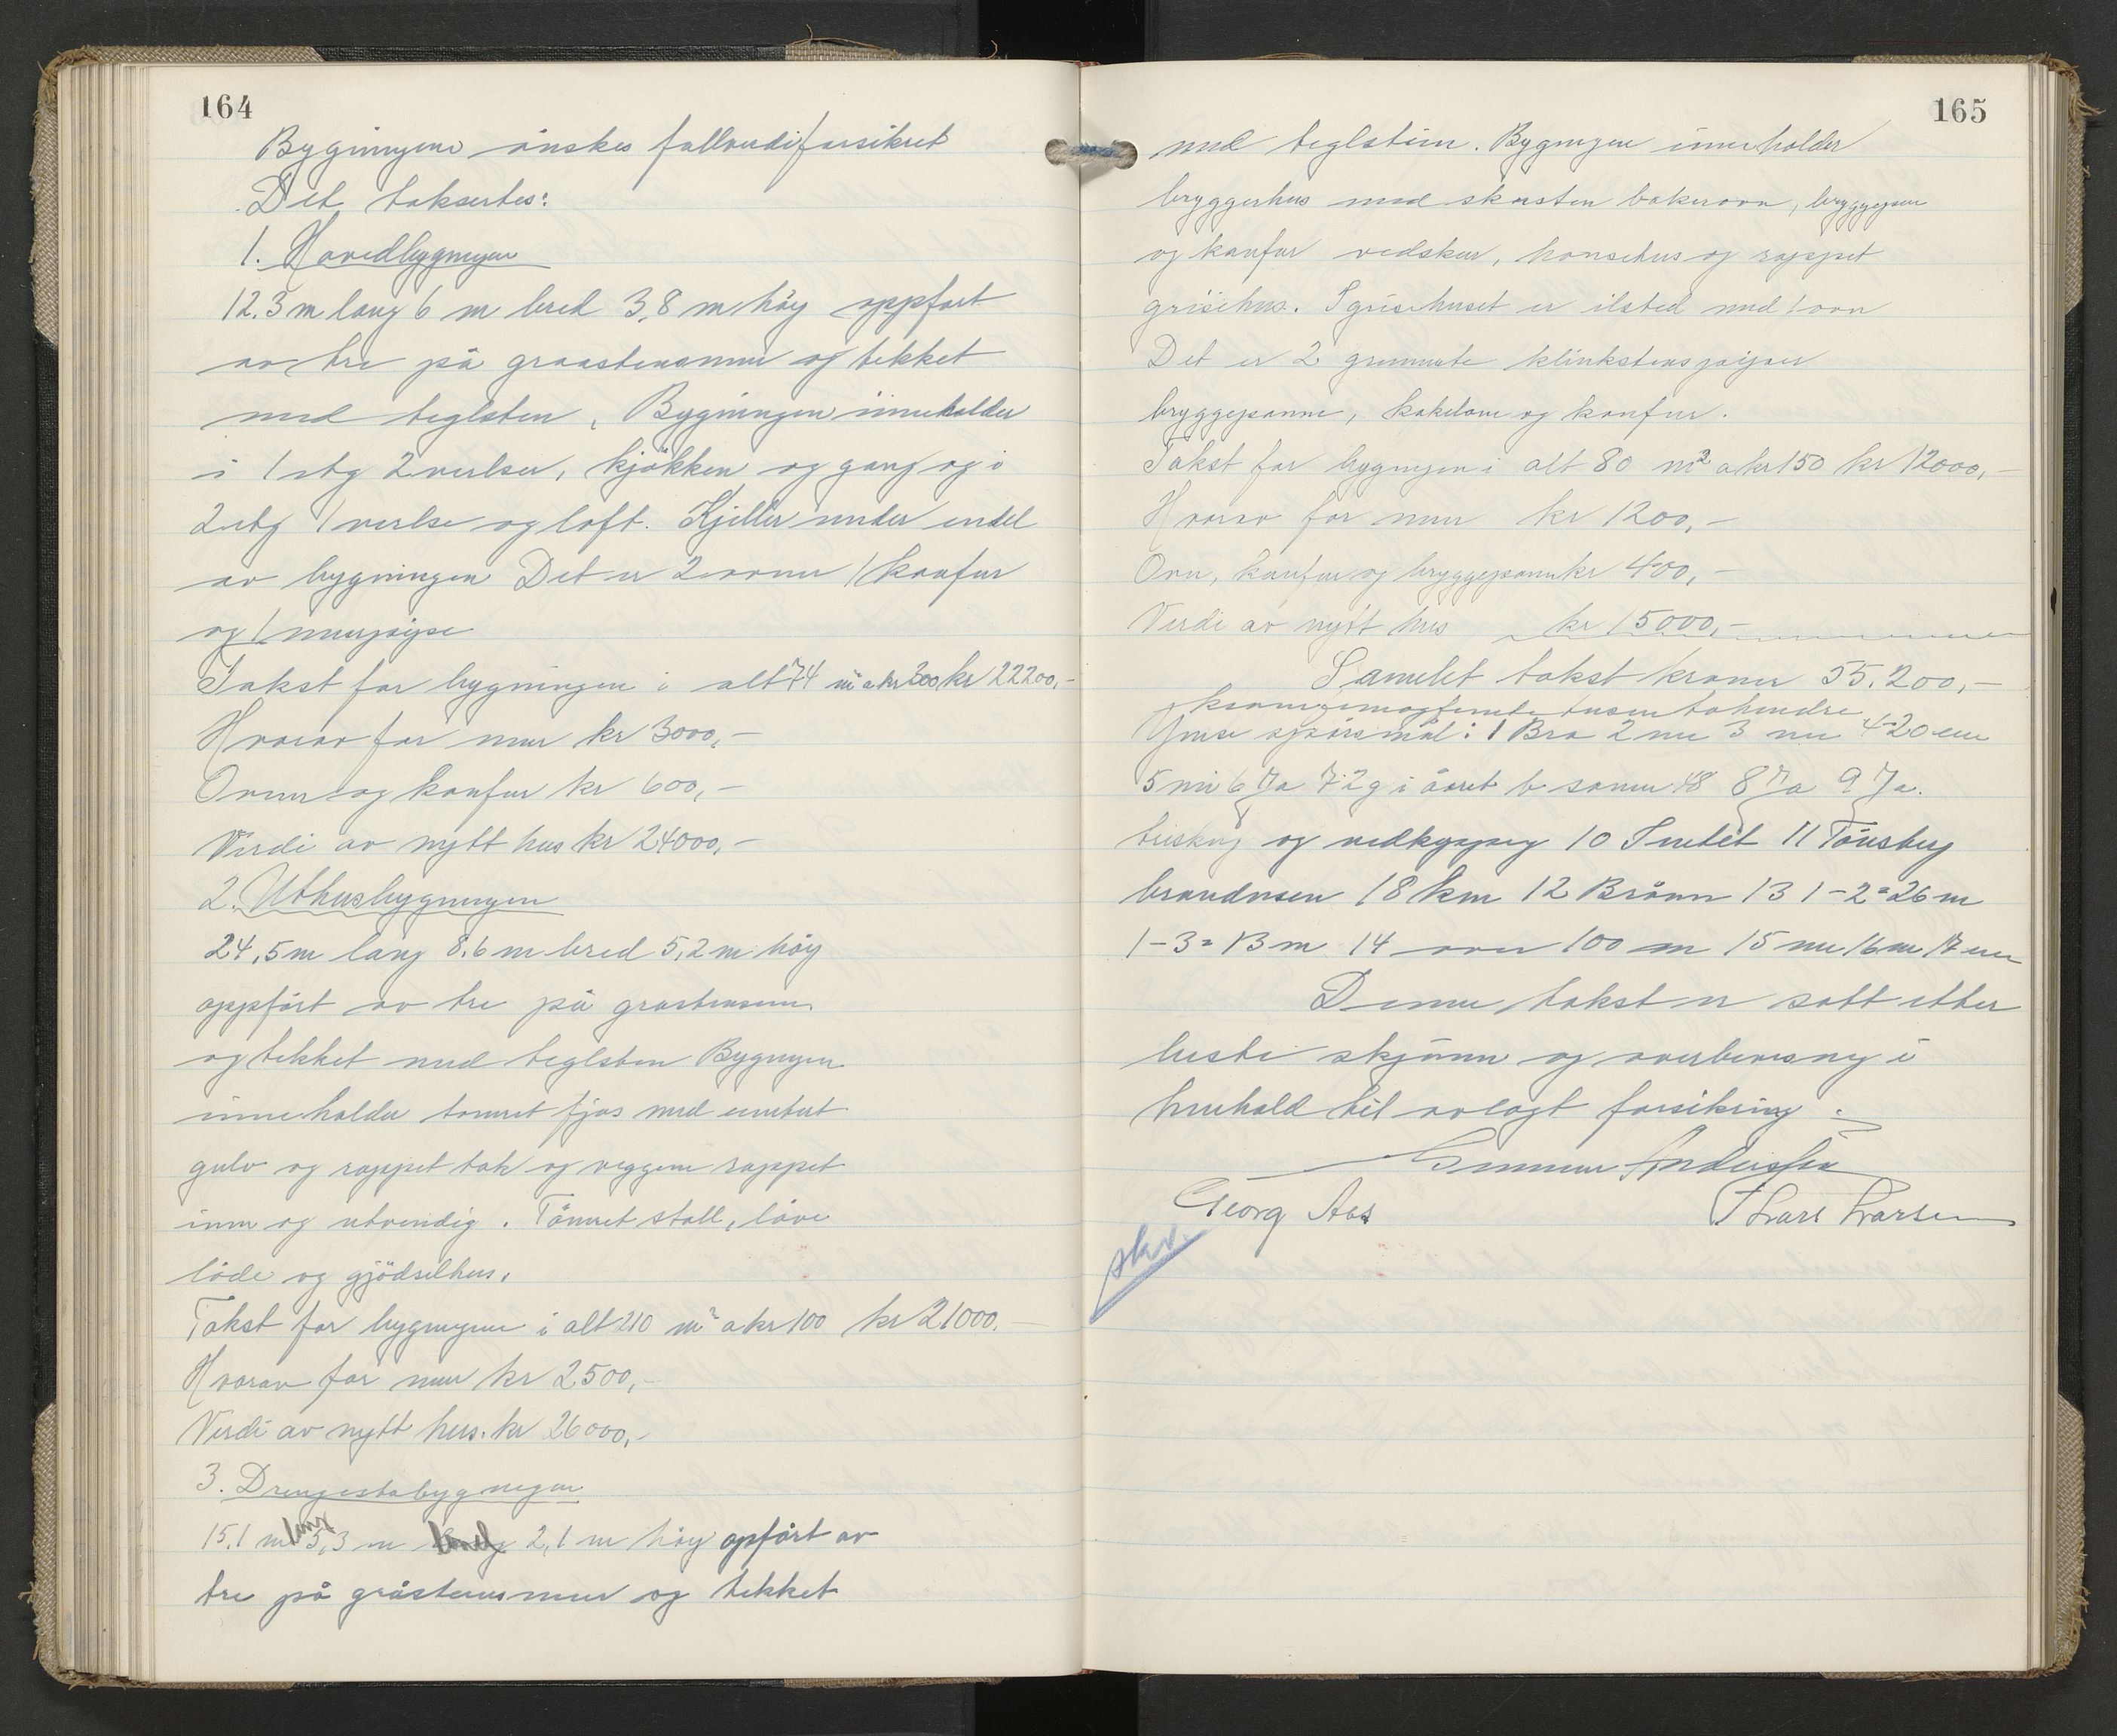 164
Bygningene önskes fullverdiforsikret
Det taksertes:
1. Hovedbygningen
12.3 m lang 6 m bred 3,8 m höy oppfört
av tre på graastensmur og tekket
med teglsten. Bygningen inneholder
i 1 etg 2 verlser, kjökken og gang og i
2 etg 1 verlse og loft. Kjeller under endel
av bygningen Det er 2 ovner 1 komfur
og 1 murpipe
Takst for bygningen i alt 74 m² a kr 300, kr 22200,-
Hvorav for mur kr 3000,-
Ovner og komfur kr 600,-
Verdi av nytt hus kr 24000,-
2. Uthusbygningen
24,5 m lang 8,6 m bred 5,2 m höy
oppfört av tre på grastensmur
og tekket med teglsten Bygningen
inneholder tömret fjös med sementert
gulv og rappet tak og veggene rappet
inn og utvendig. Tömret stall, låve
löde og gjödselhus.
Takst for bygningene i alt 210 m² a kr 100 kr 21000.-
Hvorav for mur kr 2500,-
Verdi av nytt hus. kr 26000,-
3. Drengestubygningen
15,1 m lang 5,3 m bred 2,1 m höy opfört av
tre på gråstensmur og tekket
165
med teglstein. Bygningen inneholder
bryggerhus med skorsten bakerovn, bryggepanne
og komfur vedskur, hönsehus og rappet
grisehus. I grisehuset er ilsted med 1 ovn
Det er 2 grunnmurte klinkstenspiper
bryggepanne, kakelovn og komfur.
Takst for bygningen i alt 80 m² a kr 150 kr 12000,-
Hvorav for mur kr 1200,-
Ovn, komfur og bryggepanne kr 400,-
Verdi av nytt hus kr 15000,-
Samlet takst kroner 55.200,-
kronerfemogfemtitusentohundre
Ymse spörsmål: 1 Bra 2 nei 3 nei 4 20 cm
5 nei 6 Ja 7: 2 g i året b somm 48 8 Ja 9 Ja.
tresking og vedkapping 10 Intet 11 Tönsberg
brandvesen 18 km 12 Brönn 13 1-2=26 m
1-3= 13 m 14 over 100 m 15 nei 16 nei 17 nei
Denne takst er satt etter
beste skjönn og overbevisning i
henhold til avlagt forsikring.
Gunnar Anderssen
Georg Aas Thvars Larsen
skr.